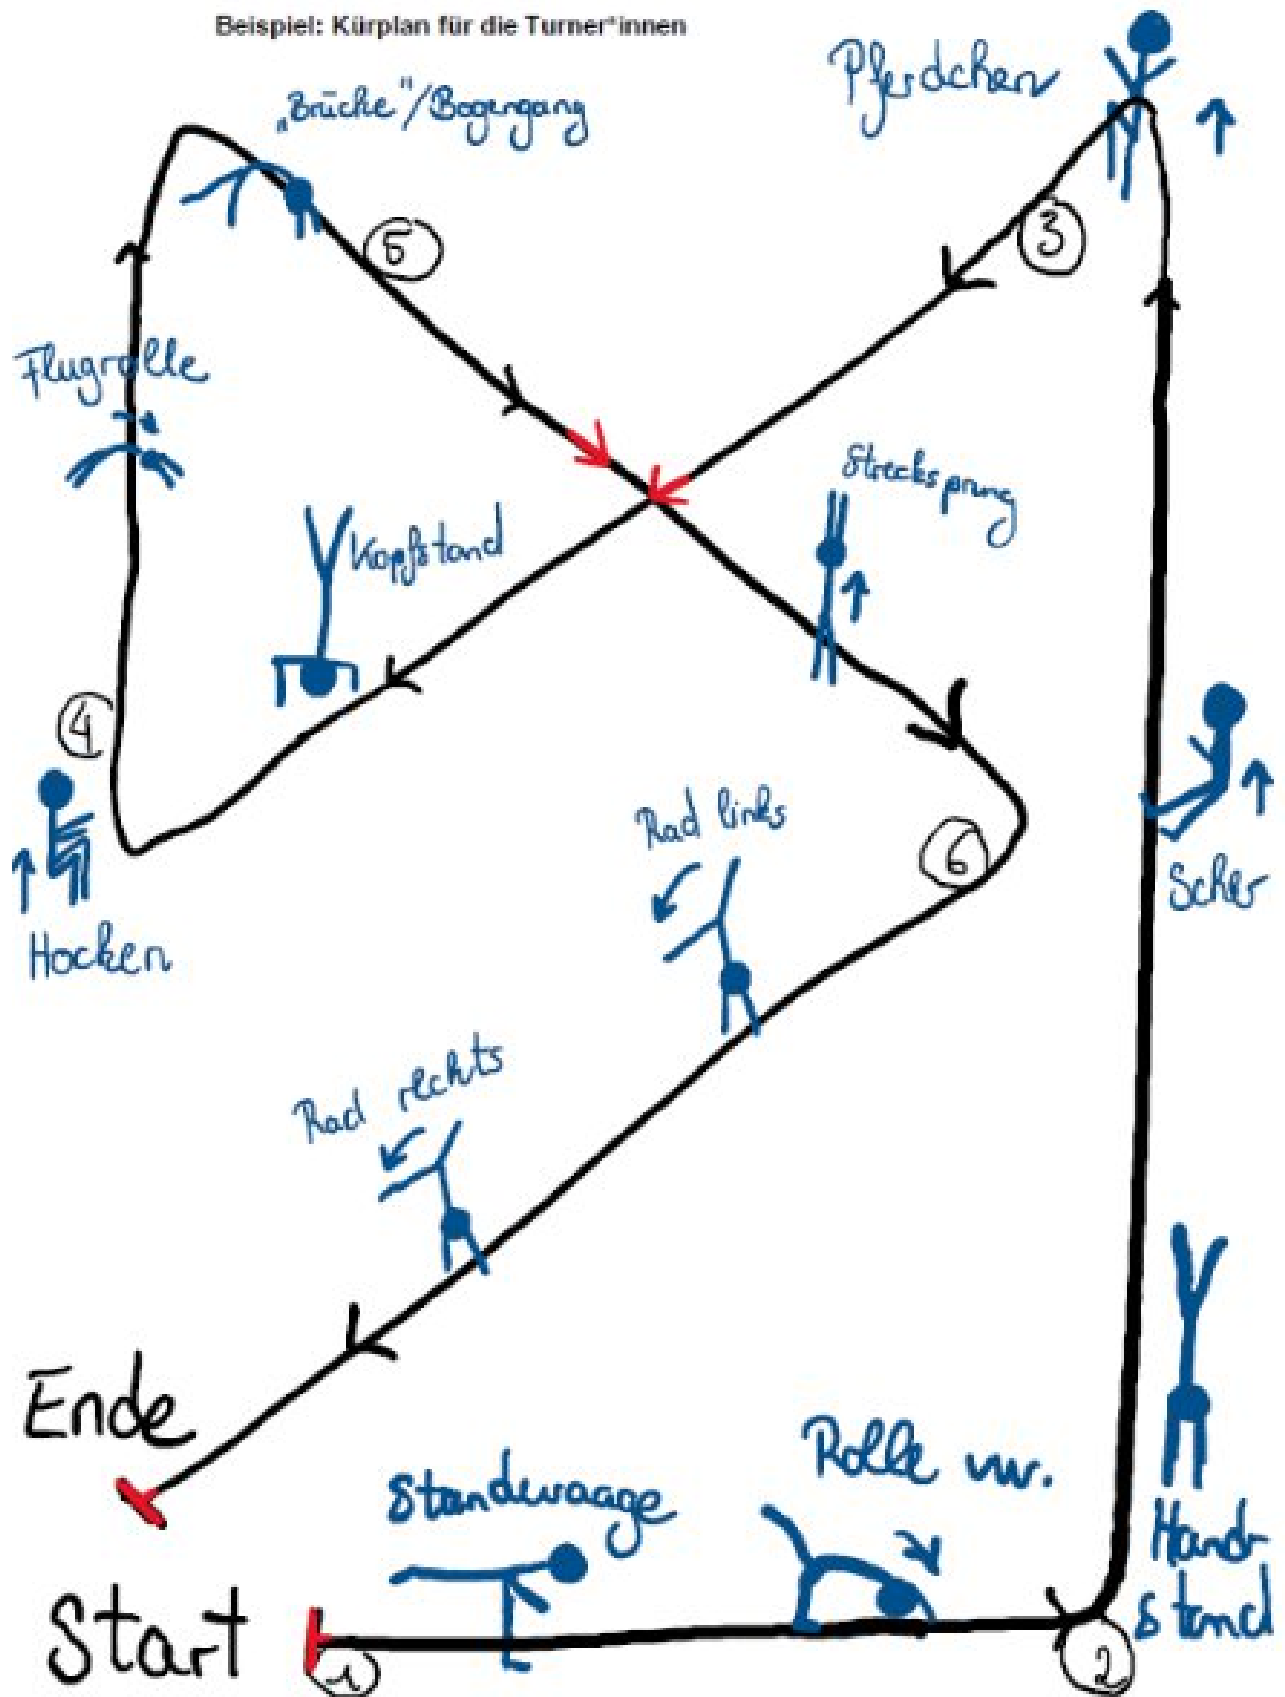 Beispiel: Kürplan für die Turner*innen
„Brücke“/Bogengang
Pferdchen
5
3
Flugrolle
Strecksprung
Kopfstand
4
Scher
Rad links
6
Hocken
Rad rechts
Ende
Rolle vw.
Standwaage
Hand-
stand
Start
1
2